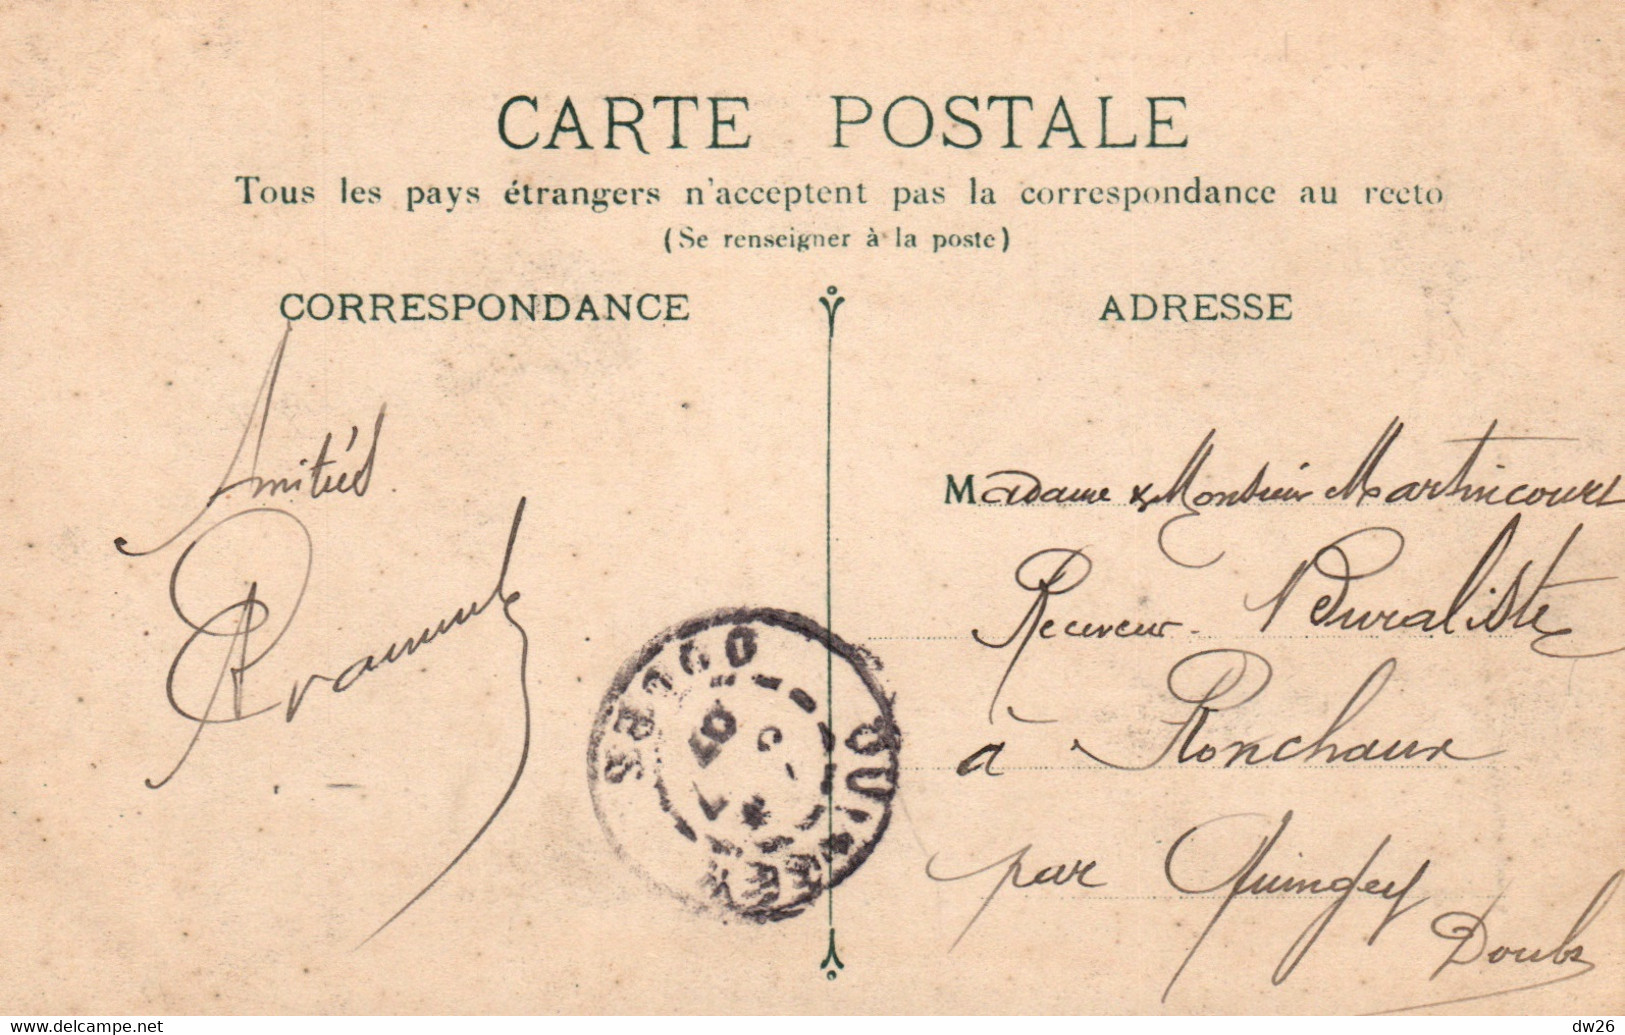 CARTE POSTALE
Tous les pays étrangers n'acceptent pas la correspondance au recto
(Se renseigner à la poste)
CORRESPONDANCE
ADRESSE
Amitiés
Madame & Monsieur Martincourt
Receveur Buraliste
à Ronchaux
par Quingey
Doubs
QUINGEY
DOUBS
07
delcampe.net
dw26